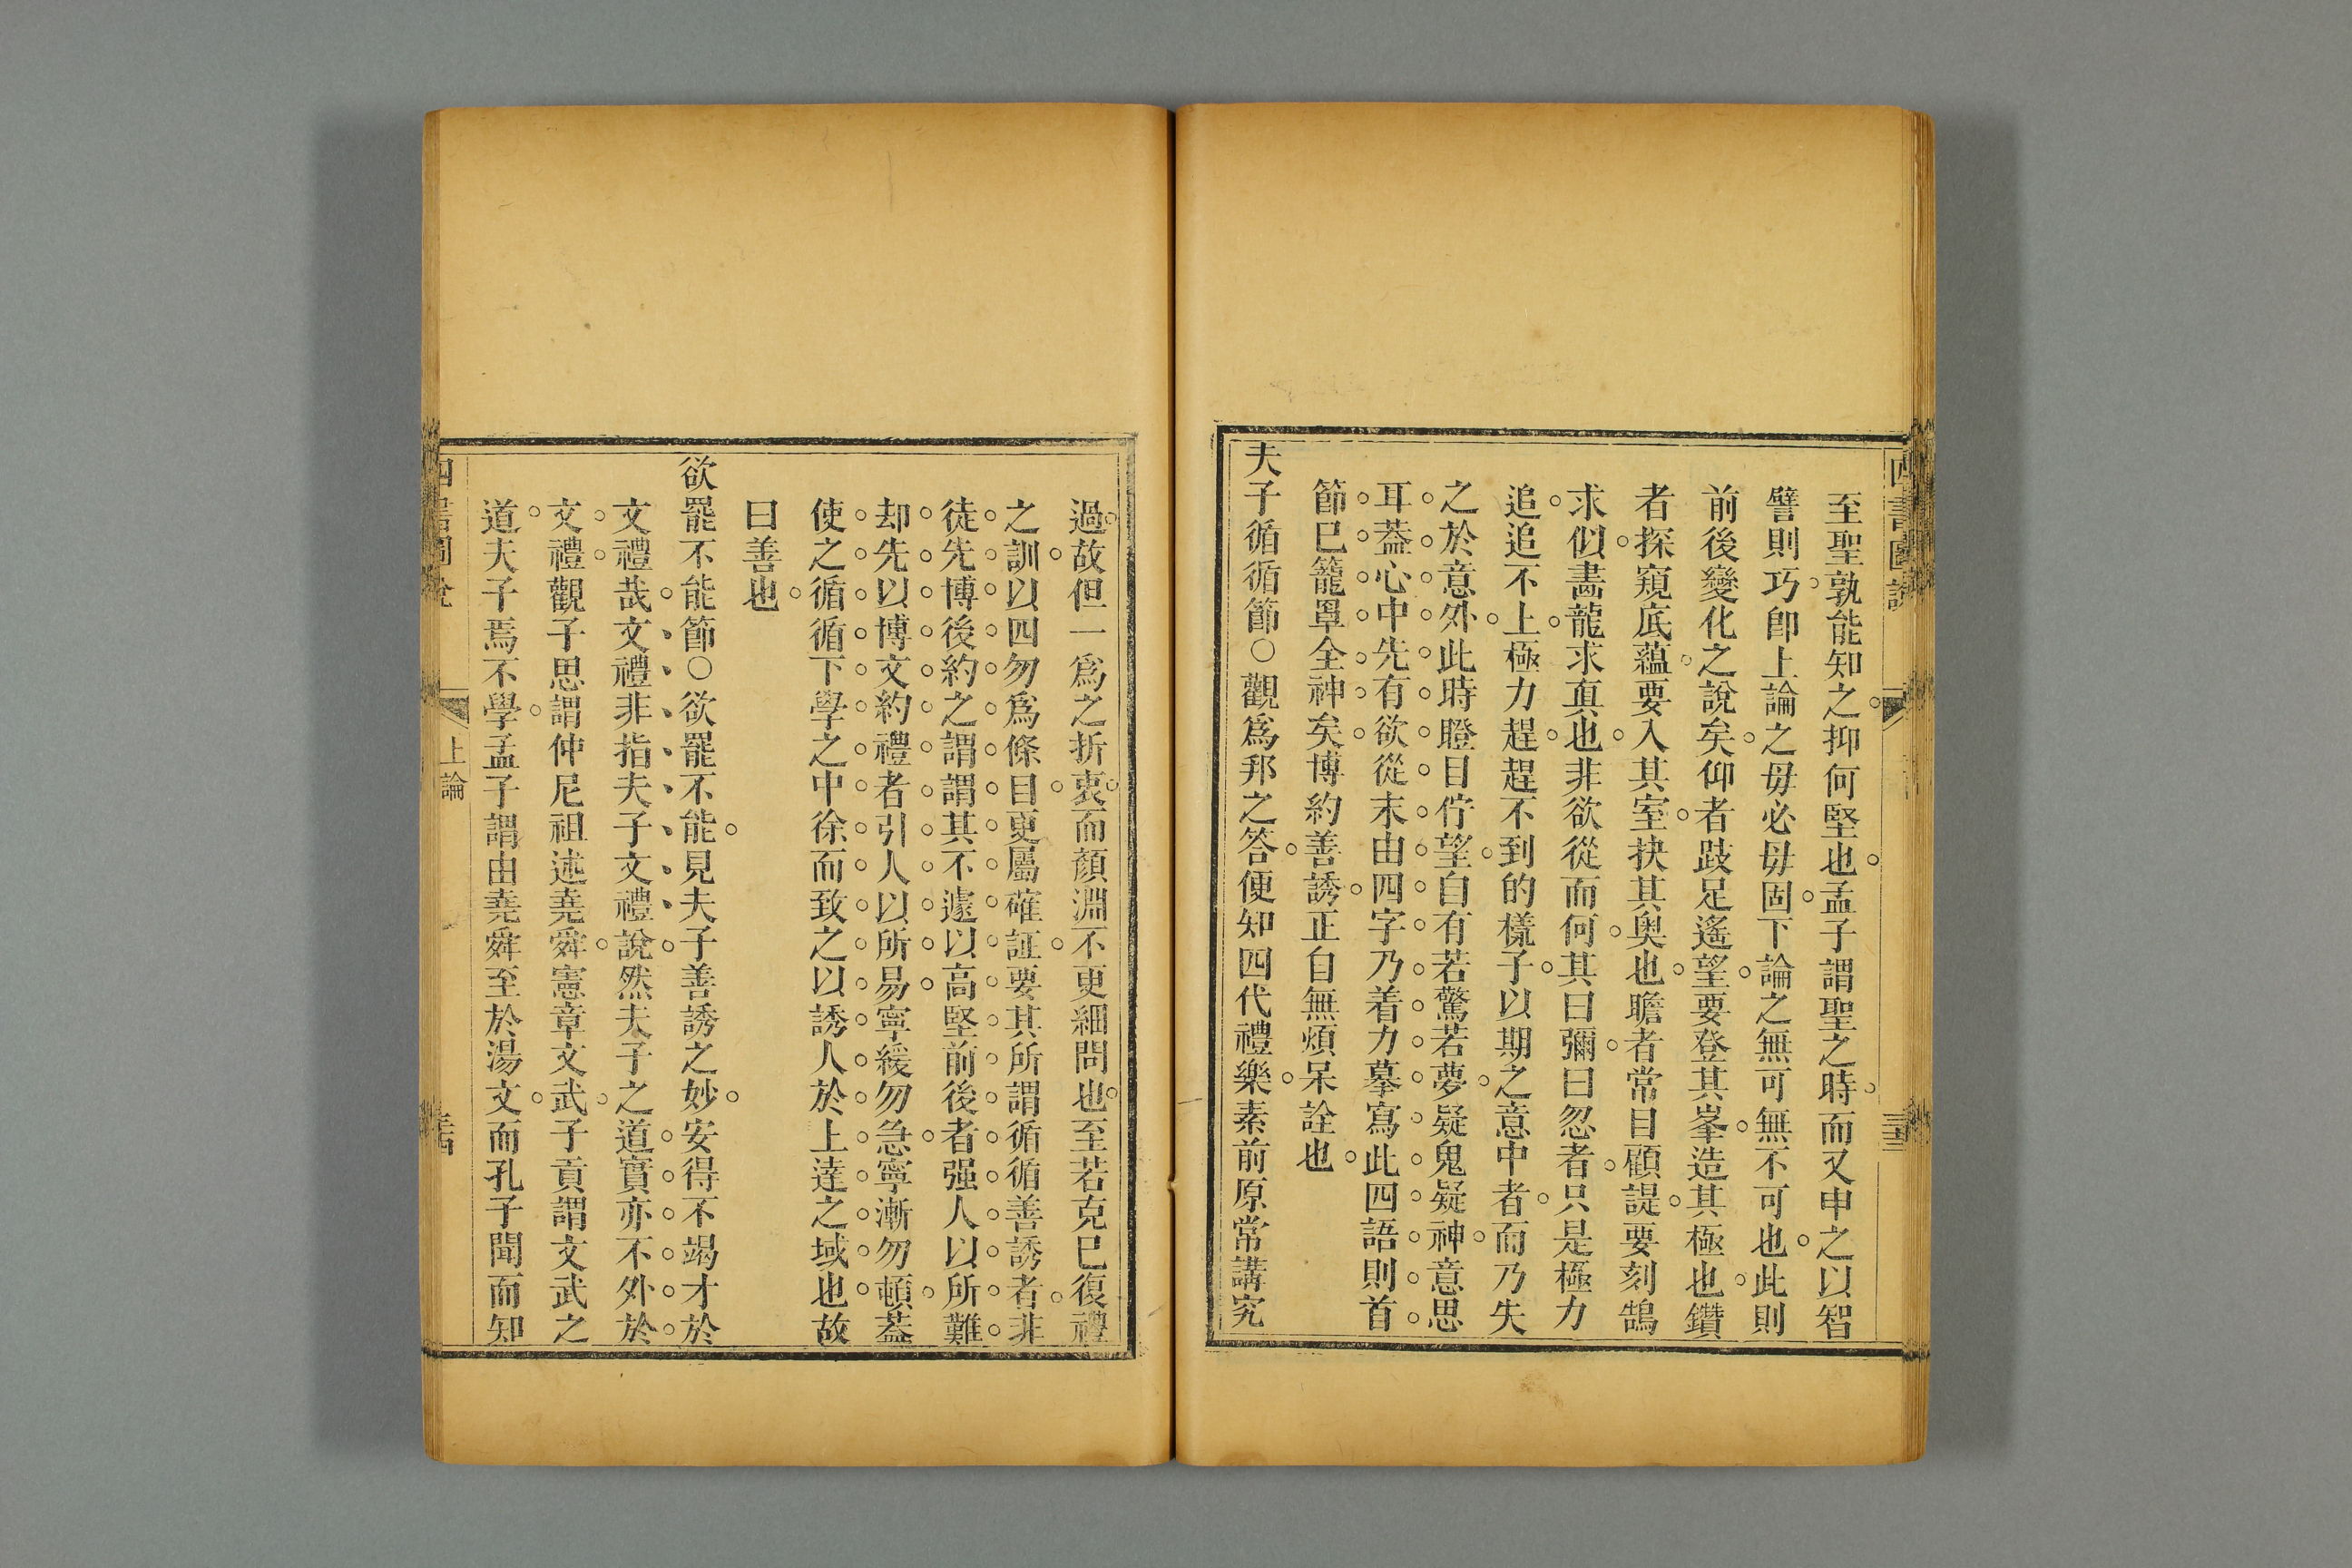 至聖孰能知之抑何堅也孟子謂聖之時而又申之以智
譬則巧卽上論之毋必毋固下論之無可無不可也此則
前後變化之說矣仰者跂足遙望要登其峯造其極也鑽
者探窺底蘊要入其室抉其奧也瞻者常目顧諟要刻鵠
求似畵龍求真也非欲從而何其曰彌曰忽者只是極力
追追不上極力趕趕不到的樣子以期之意中者而乃失
之於意外此時瞪目佇望自有若驚若夢疑鬼疑神意思
耳葢心中先有欲從末由四字乃着力摹寫此四語則首
節已籠罩全神矣博約善誘正自無煩呆詮也
夫子循循節○觀爲邦之答便知四代禮樂素前原常講究
過故但一爲之折衷而顏淵不更細問也至若克已復禮
之訓以四勿爲條目更屬確証要其所謂循循善誘者非
徒先博後約之謂謂其不遽以高堅前後者强人以所難
却先以博文約禮者引人以所易寧緩勿急寧漸勿頓葢
使之循循下學之中徐而致之以誘人於上達之域也故
曰善也
欲罷不能節○欲罷不能見夫子善誘之妙安得不竭才於
文禮哉文禮非指夫子文禮說然夫子之道實亦不外於
文禮觀子思謂仲尼祖述堯舜憲章文武子貢謂文武之
道夫子焉不學孟子謂由堯舜至於湯文而孔子聞而知
上論